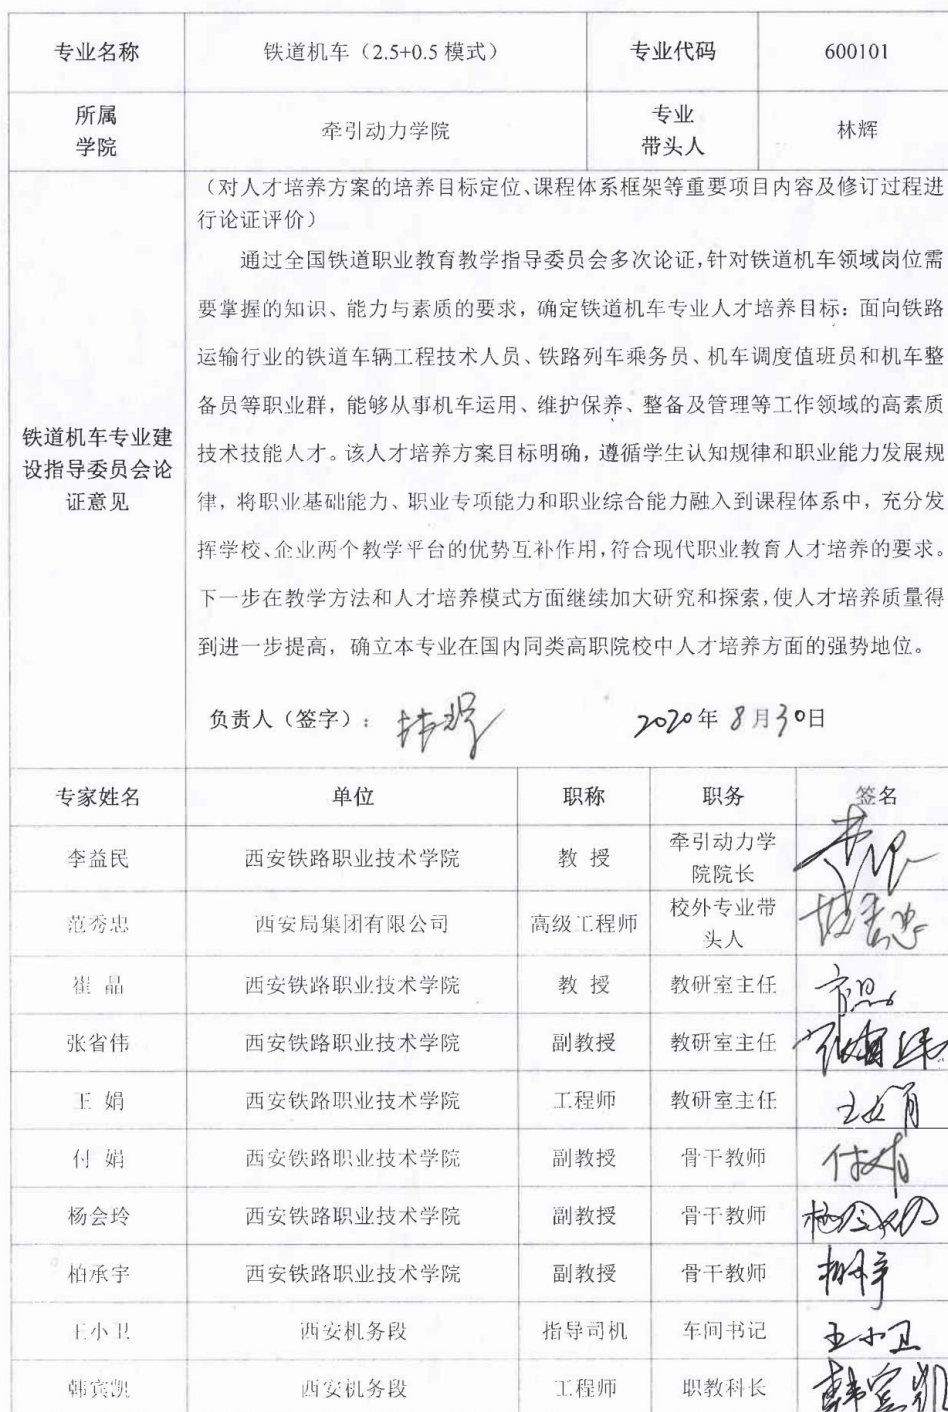 专业名称 铁道机车（2.5+0.5 模式） 专业代码 600101
所属
学院
牵引动力学院
专业
带头人
林辉
铁道机车专业建
设指导委员会论
证意见
（对人才培养方案的培养目标定位、课程体系框架等重要项目内容及修订过程进
行论证评价）
通过全国铁道职业教育教学指导委员会多次论证，针对铁道机车领域岗位需
要掌握的知识、能力与素质的要求，确定铁道机车专业人才培养目标：面向铁路
运输行业的铁道车辆工程技术人员、铁路列车乘务员、机车调度值班员和机车整
备员等职业群，能够从事机车运用、维护保养、整备及管理等工作领域的高素质
技术技能人才。该人才培养方案目标明确，遵循学生认知规律和职业能力发展规
律，将职业基础能力、职业专项能力和职业综合能力融入到课程体系中，充分发
挥学校、企业两个教学平台的优势互补作用，符合现代职业教育人才培养的要求。
下一步在教学方法和人才培养模式方面继续加大研究和探索，使人才培养质量得
到进一步提高，确立本专业在国内同类高职院校中人才培养方面的强势地位。
负责人（签字）：林辉 2020年8月30日
专家姓名 单位 职称 职务 签名
李益民 西安铁路职业技术学院 教 授 牵引动力学
院院长
范秀忠 西安局集团有限公司 高级工程师 校外专业带
头人 范秀忠
崔 晶 西安铁路职业技术学院 教 授 教研室主任
张省伟 西安铁路职业技术学院 副教授 教研室主任 张省伟
王 娟 西安铁路职业技术学院 工程师 教研室主任 王娟
付 娟 西安铁路职业技术学院 副教授 骨干教师 付娟
杨会玲 西安铁路职业技术学院 副教授 骨干教师 杨会玲
柏承宇 西安铁路职业技术学院 副教授 骨干教师 柏承宇
王小卫 西安机务段 指导司机 车间书记 王小卫
韩宾凯 西安机务段 工程师 职教科长 韩宾凯